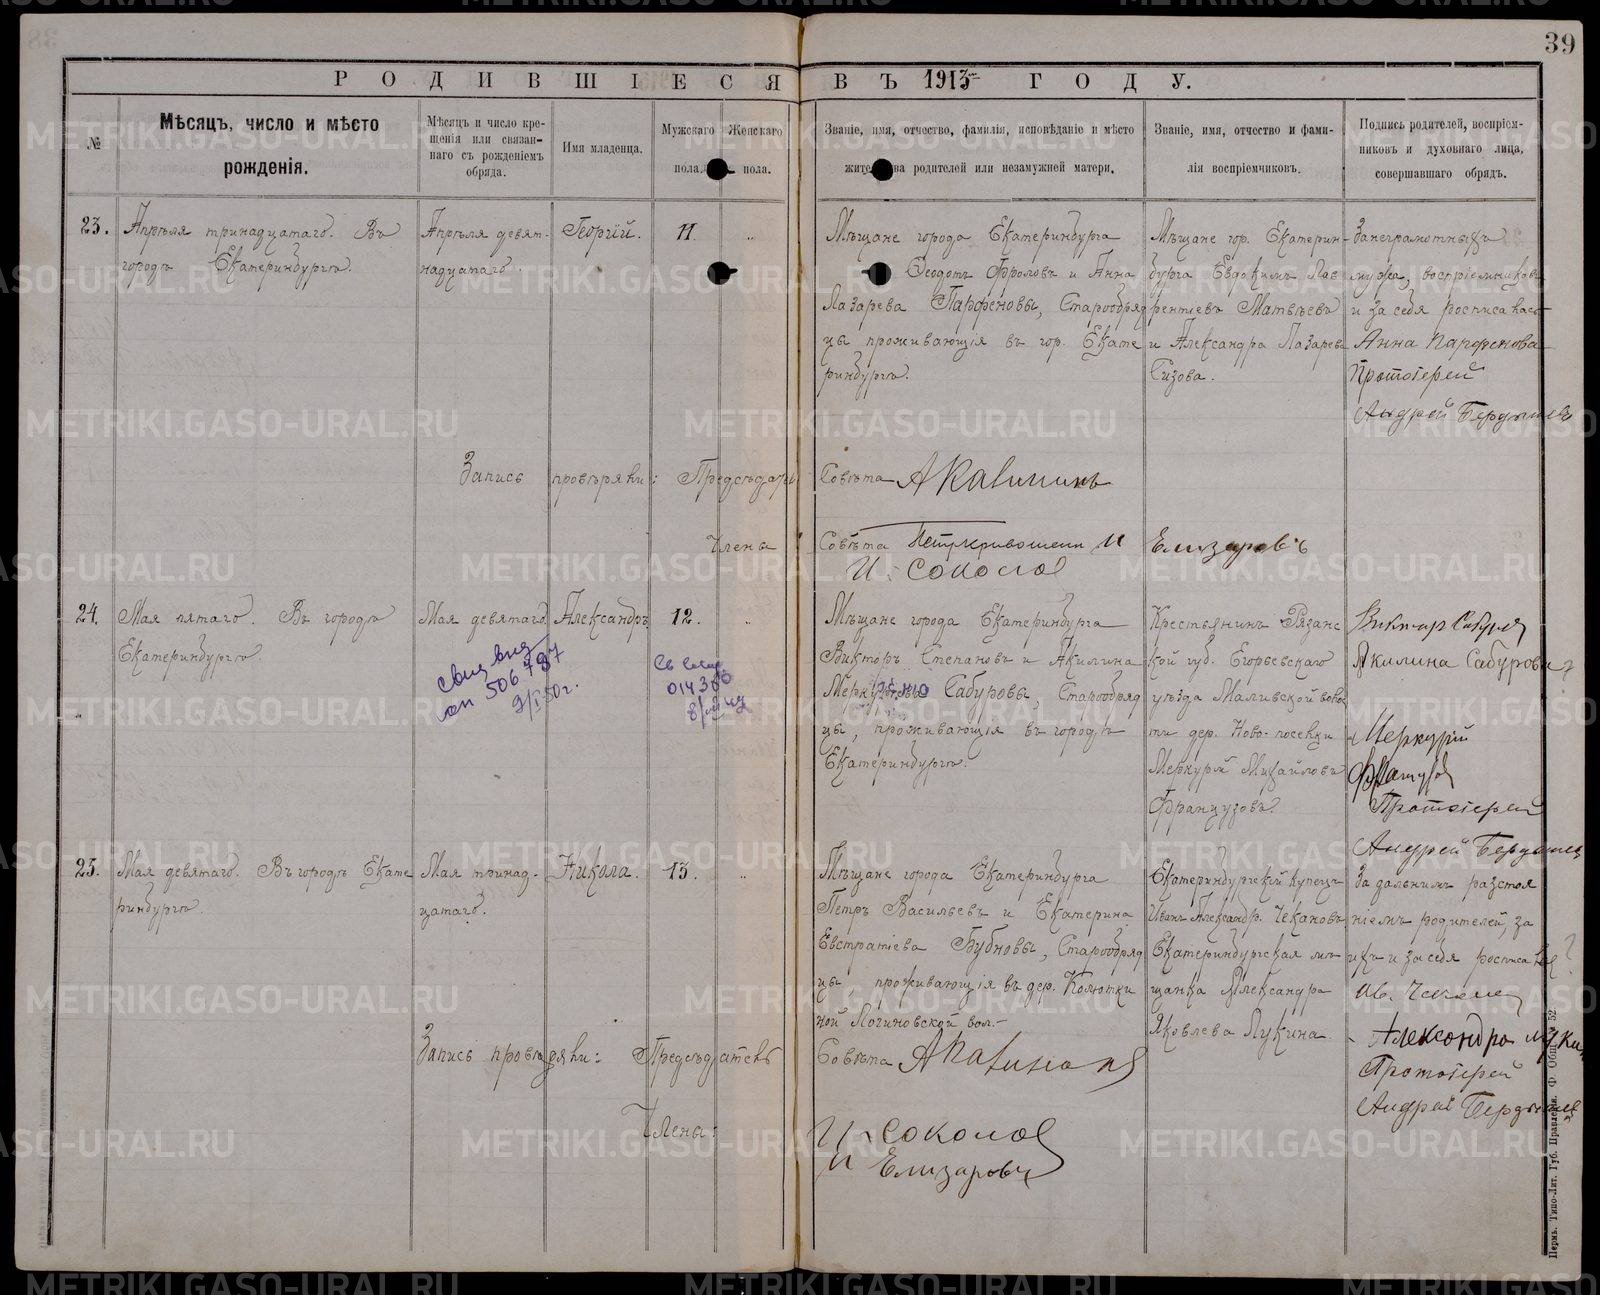 39
РОДИВШІЕСЯ ВЪ 1913 ГОДУ.
№
Мѣсяцъ, число и мѣсто
рожденія.
Мѣсяцъ и число кре-
щенія или связан-
наго съ рожденіемъ
обряда.
Имя младенца.
Мужскаго
пола.
Женскаго
пола.
Званіе, имя, отчество, фамилія, исповѣданіе и мѣсто
жите ва родителей или незамужней матери.
Званіе, имя, отчество и фами-
лія воспріемчиковъ.
Подпись родителей, воспріем-
никовъ и духовнаго лица,
совершавшаго обрядъ.
23.
Апрѣля тринадцатаго. Въ
городѣ Екатеринбургѣ.
Апрѣля девят-
надцатаго.
Георгій.
11
Мѣщане города Екатеринбурга
Ѳеодотъ Фроловъ и Анна
Лазарева Парфеновы, Старообряд
цы проживающія въ гор. Екате
ринбургѣ.
Мѣщане гор. Екатерин-
бурга Евдокимъ Лав
рентіевъ Матвѣевъ
и Александра Лазарева
Сизова.
За неграмотныхъ
мужа, воспріемниковъ
и за себя росписалась
Анна Парфенова
Протоіерей
Андрей Бердышевъ
Запись провѣряли: Предсѣдатель
Совѣта
Члены
Совѣта
И Елизаровъ
И. Соколов
24.
Мая пятаго. Въ городѣ
Екатеринбургѣ.
Мая девятаго
Александръ
12.
506787
9/I 50 г.
014300
Мѣщане города Екатеринбурга
Викторъ Степановъ и Акилина
Меркурьева Сабуровы, Старообряд
цы, проживающія въ городѣ
Екатеринбургѣ.
Крестьянинъ Рязанс
кой губ. Егорьевскаго
уѣзда Маливской волос
ти дер. Ново-поселки
Меркурій Михайловъ
Французовъ
Виктор Сабуров
Акилина Сабурова
Меркурій
Протоіерей
Андрей Бердышев
25.
Мая девятаго. Въ городѣ Екате
ринбургѣ.
Мая тринад-
цатаго.
Никола.
13.
Мѣщане города Екатеринбурга
Петръ Васильевъ и Екатерина
Евстратіева Бубновы, Старообряд
цы проживающія въ дер. Колютки
ной Логиновской вол.-
Екатеринбургскій купецъ
Иванъ Александр. Чекановъ
Екатеринбургская мѣ
щанка Александра
Яковлева Лукина
За дальнимъ разстоя
ніемъ родителей, за
ихъ и за себя росписался
Ив. Чеканов
Александра Лукина
Протоіерей
Андрей Бердышев
Запись провѣряли: Предсѣдатель
Совѣта
Члены:
И. Соколов
И Елизаровъ
Пермь. Типо-Лит. Губ. Правленія. Ф. Общ. 52.
METRIKI.GASO-URAL.RU